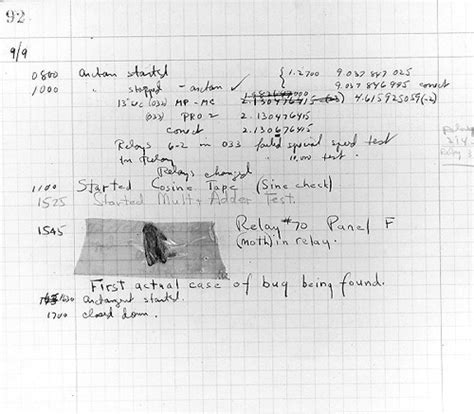 92
9/9
0800 antan started
1000 " stopped - antan ✓ { 1.2700 9.037 847 025
9.037 846 995 correct
13"uc (032) MP-MC 2.130476415 (-3) 4.615925059(-2)
(033) PRO 2 2.130476415
correct 2.130676415
Relays 6-2 in 033 failed special speed test
in relay " 11.000 test.
Relays changed
1100 Started Cosine Tape (Sine check)
1525 Started Mult + Adder Test.
1545 Relay #70 Panel F
(moth) in relay.
First actual case of bug being found.
1630 antangent started.
1700 closed down.